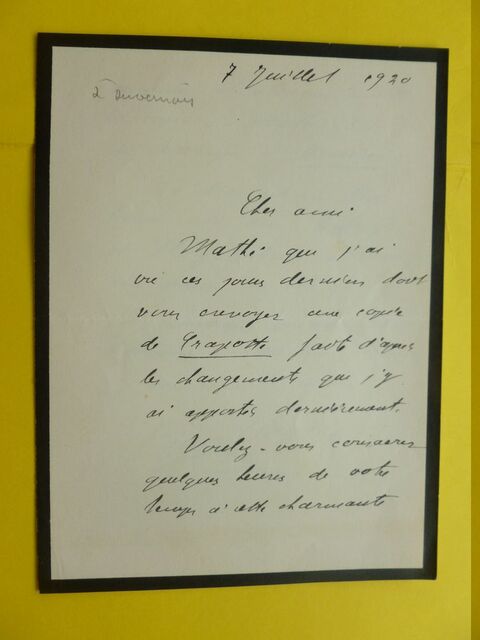 7 Juillet 1920
à Duvernois
Cher ami
Mathé que j'ai
vu ces jours derniers doit
vous envoyer une copie
de Crapotte faite d'après
les changements que j'y
ai apportés dernièrement.
Voulez-vous consacrer
quelques heures de votre
temps à cette charmante